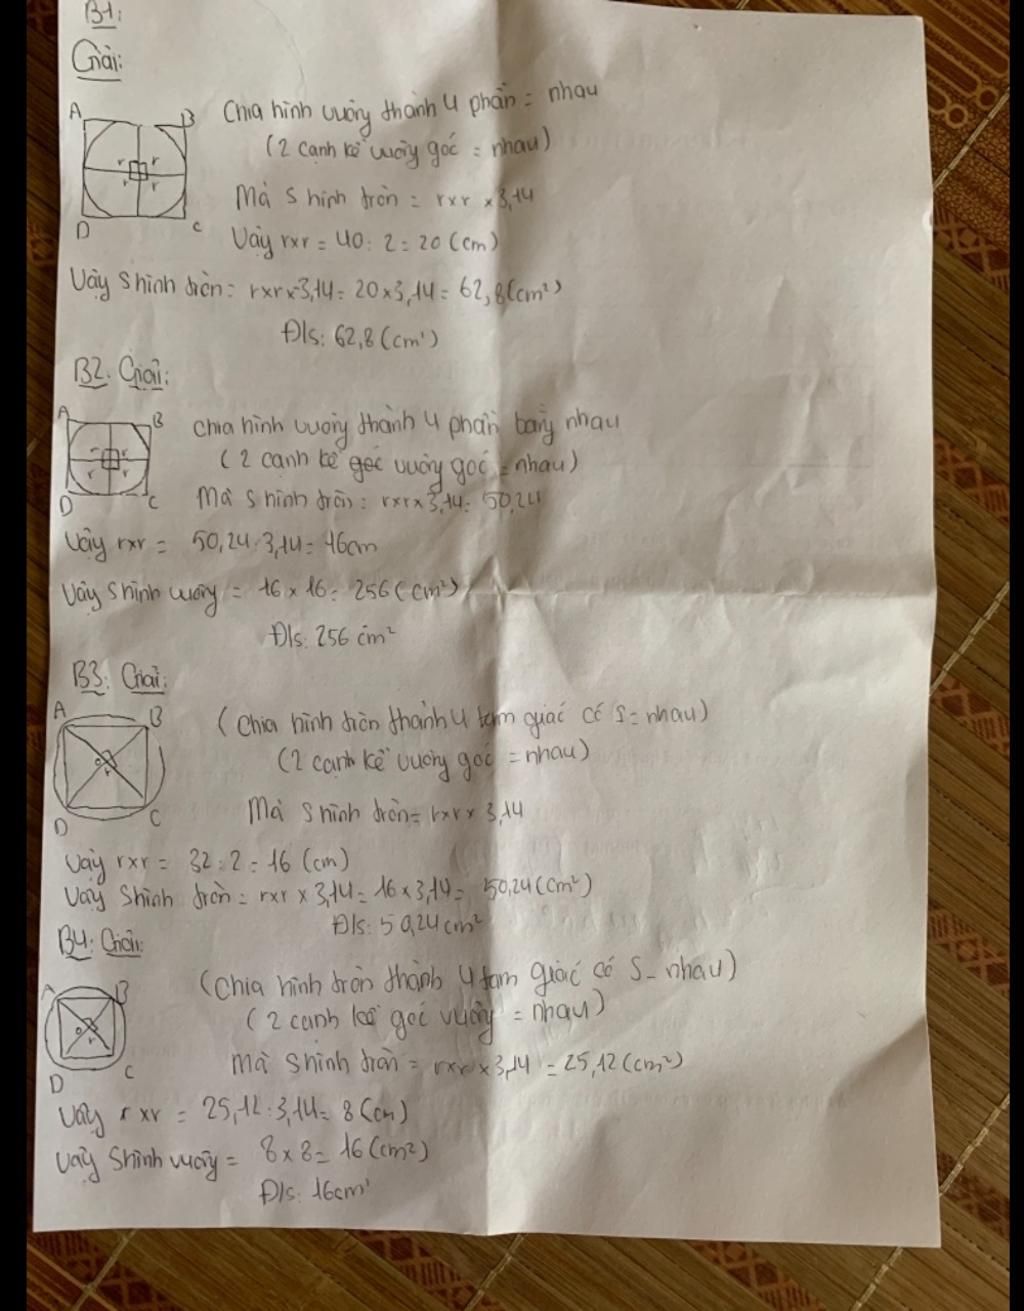 B1:
Giải:
A B
Chia hình vuông thành 4 phần = nhau
(2 cạnh kề vuông góc = nhau)
r r
r r
Mà S hình tròn = rxr x 3,14
D C
Vậy rxr = 40 : 2 = 20 (cm)
Vậy S hình tròn = rxr x 3,14 = 20 x 3,14 = 62,8 (cm²)
Đ/s: 62,8 (cm²)
B2. Giải:
A B
Chia hình vuông thành 4 phần bằng nhau
(2 cạnh kề góc vuông góc = nhau)
r r
r r
D C
Mà S hình tròn = rxr x 3,14 = 50,24
Vậy rxr = 50,24 : 3,14 = 16cm
Vậy S hình vuông = 16 x 16 = 256 (cm²)
Đ/s: 256 cm²
B3: Giải:
A B
(Chia hình tròn thành 4 tam giác có S = nhau)
(2 cạnh kề vuông góc = nhau)
O
r
Mà S hình tròn = rxr x 3,14
D C
Vậy rxr = 32 : 2 = 16 (cm)
Vậy S hình tròn = rxr x 3,14 = 16 x 3,14 = 50,24 (cm²)
Đ/s: 50,24 cm²
B4: Giải:
A B
(Chia hình tròn thành 4 tam giác có S = nhau)
(2 cạnh kề góc vuông = nhau)
O
r
Mà S hình tròn = rxr x 3,14 = 25,12 (cm²)
D C
Vậy r xr = 25,12 : 3,14 = 8 (cm)
Vậy S hình vuông = 8 x 8 = 16 (cm²)
Đ/s: 16cm²